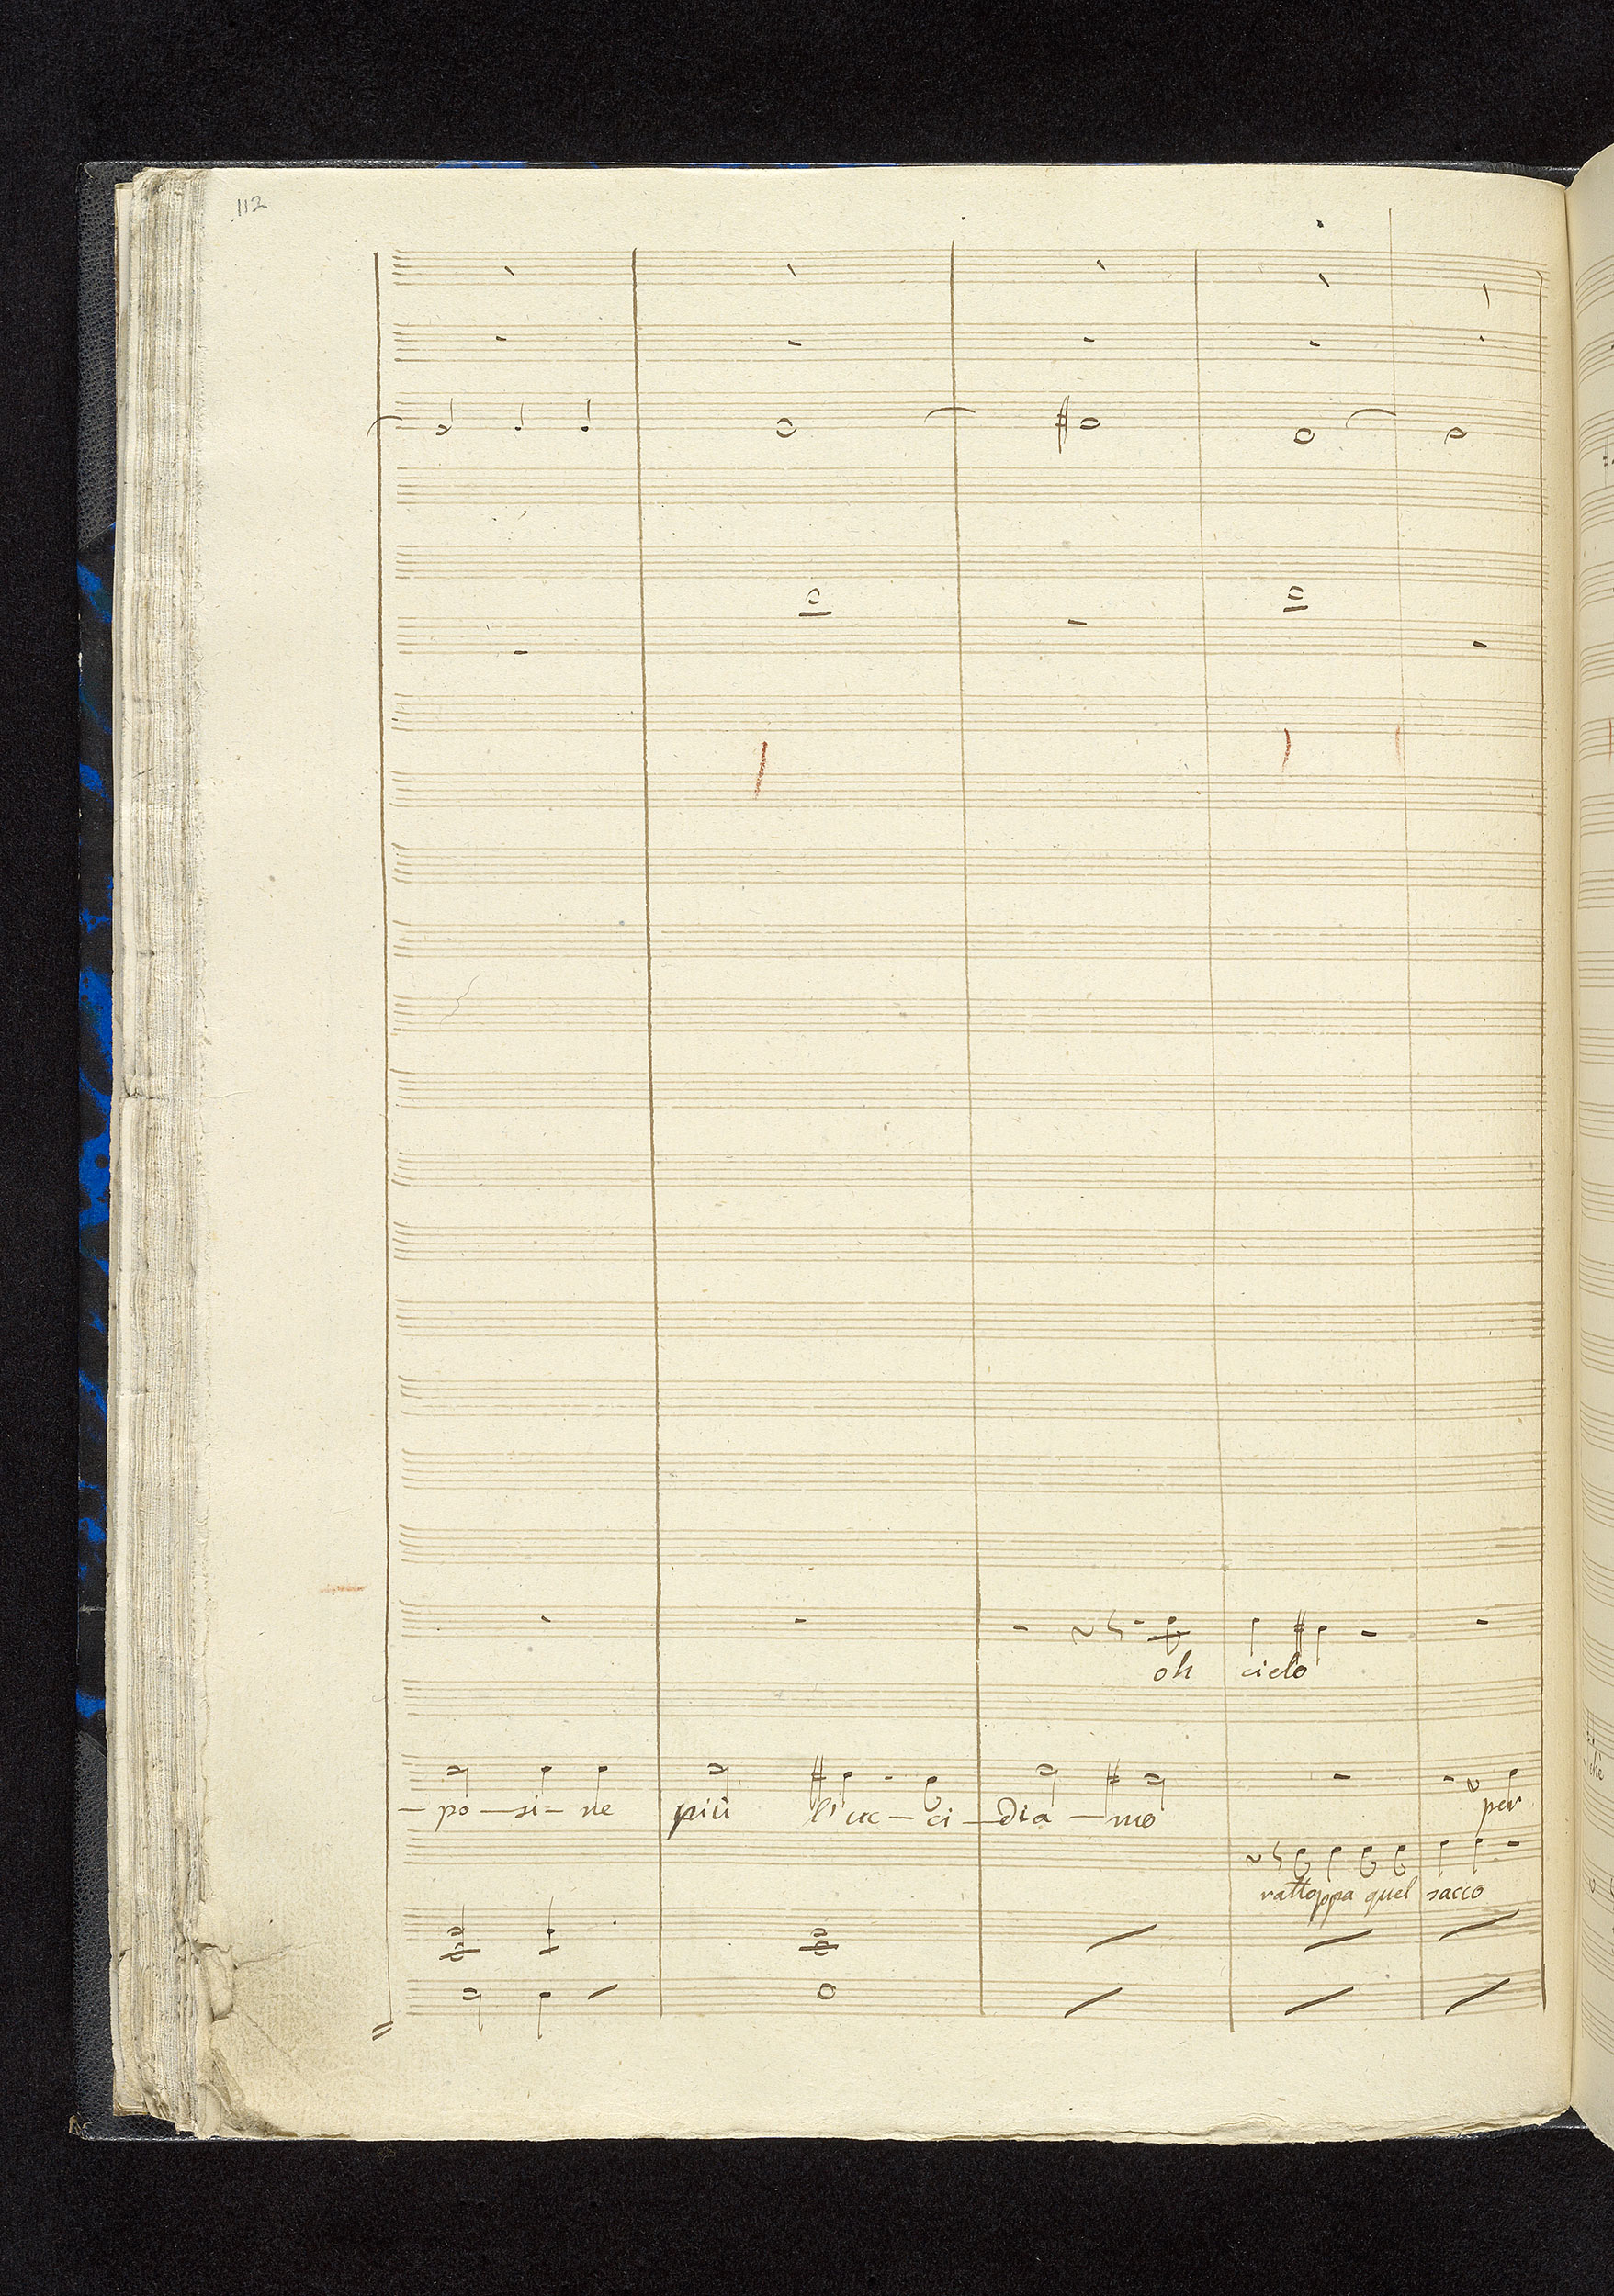 112
oh cielo
- po - si - ne più l'uc - ci - dia - mo per
rattoppa quel sacco